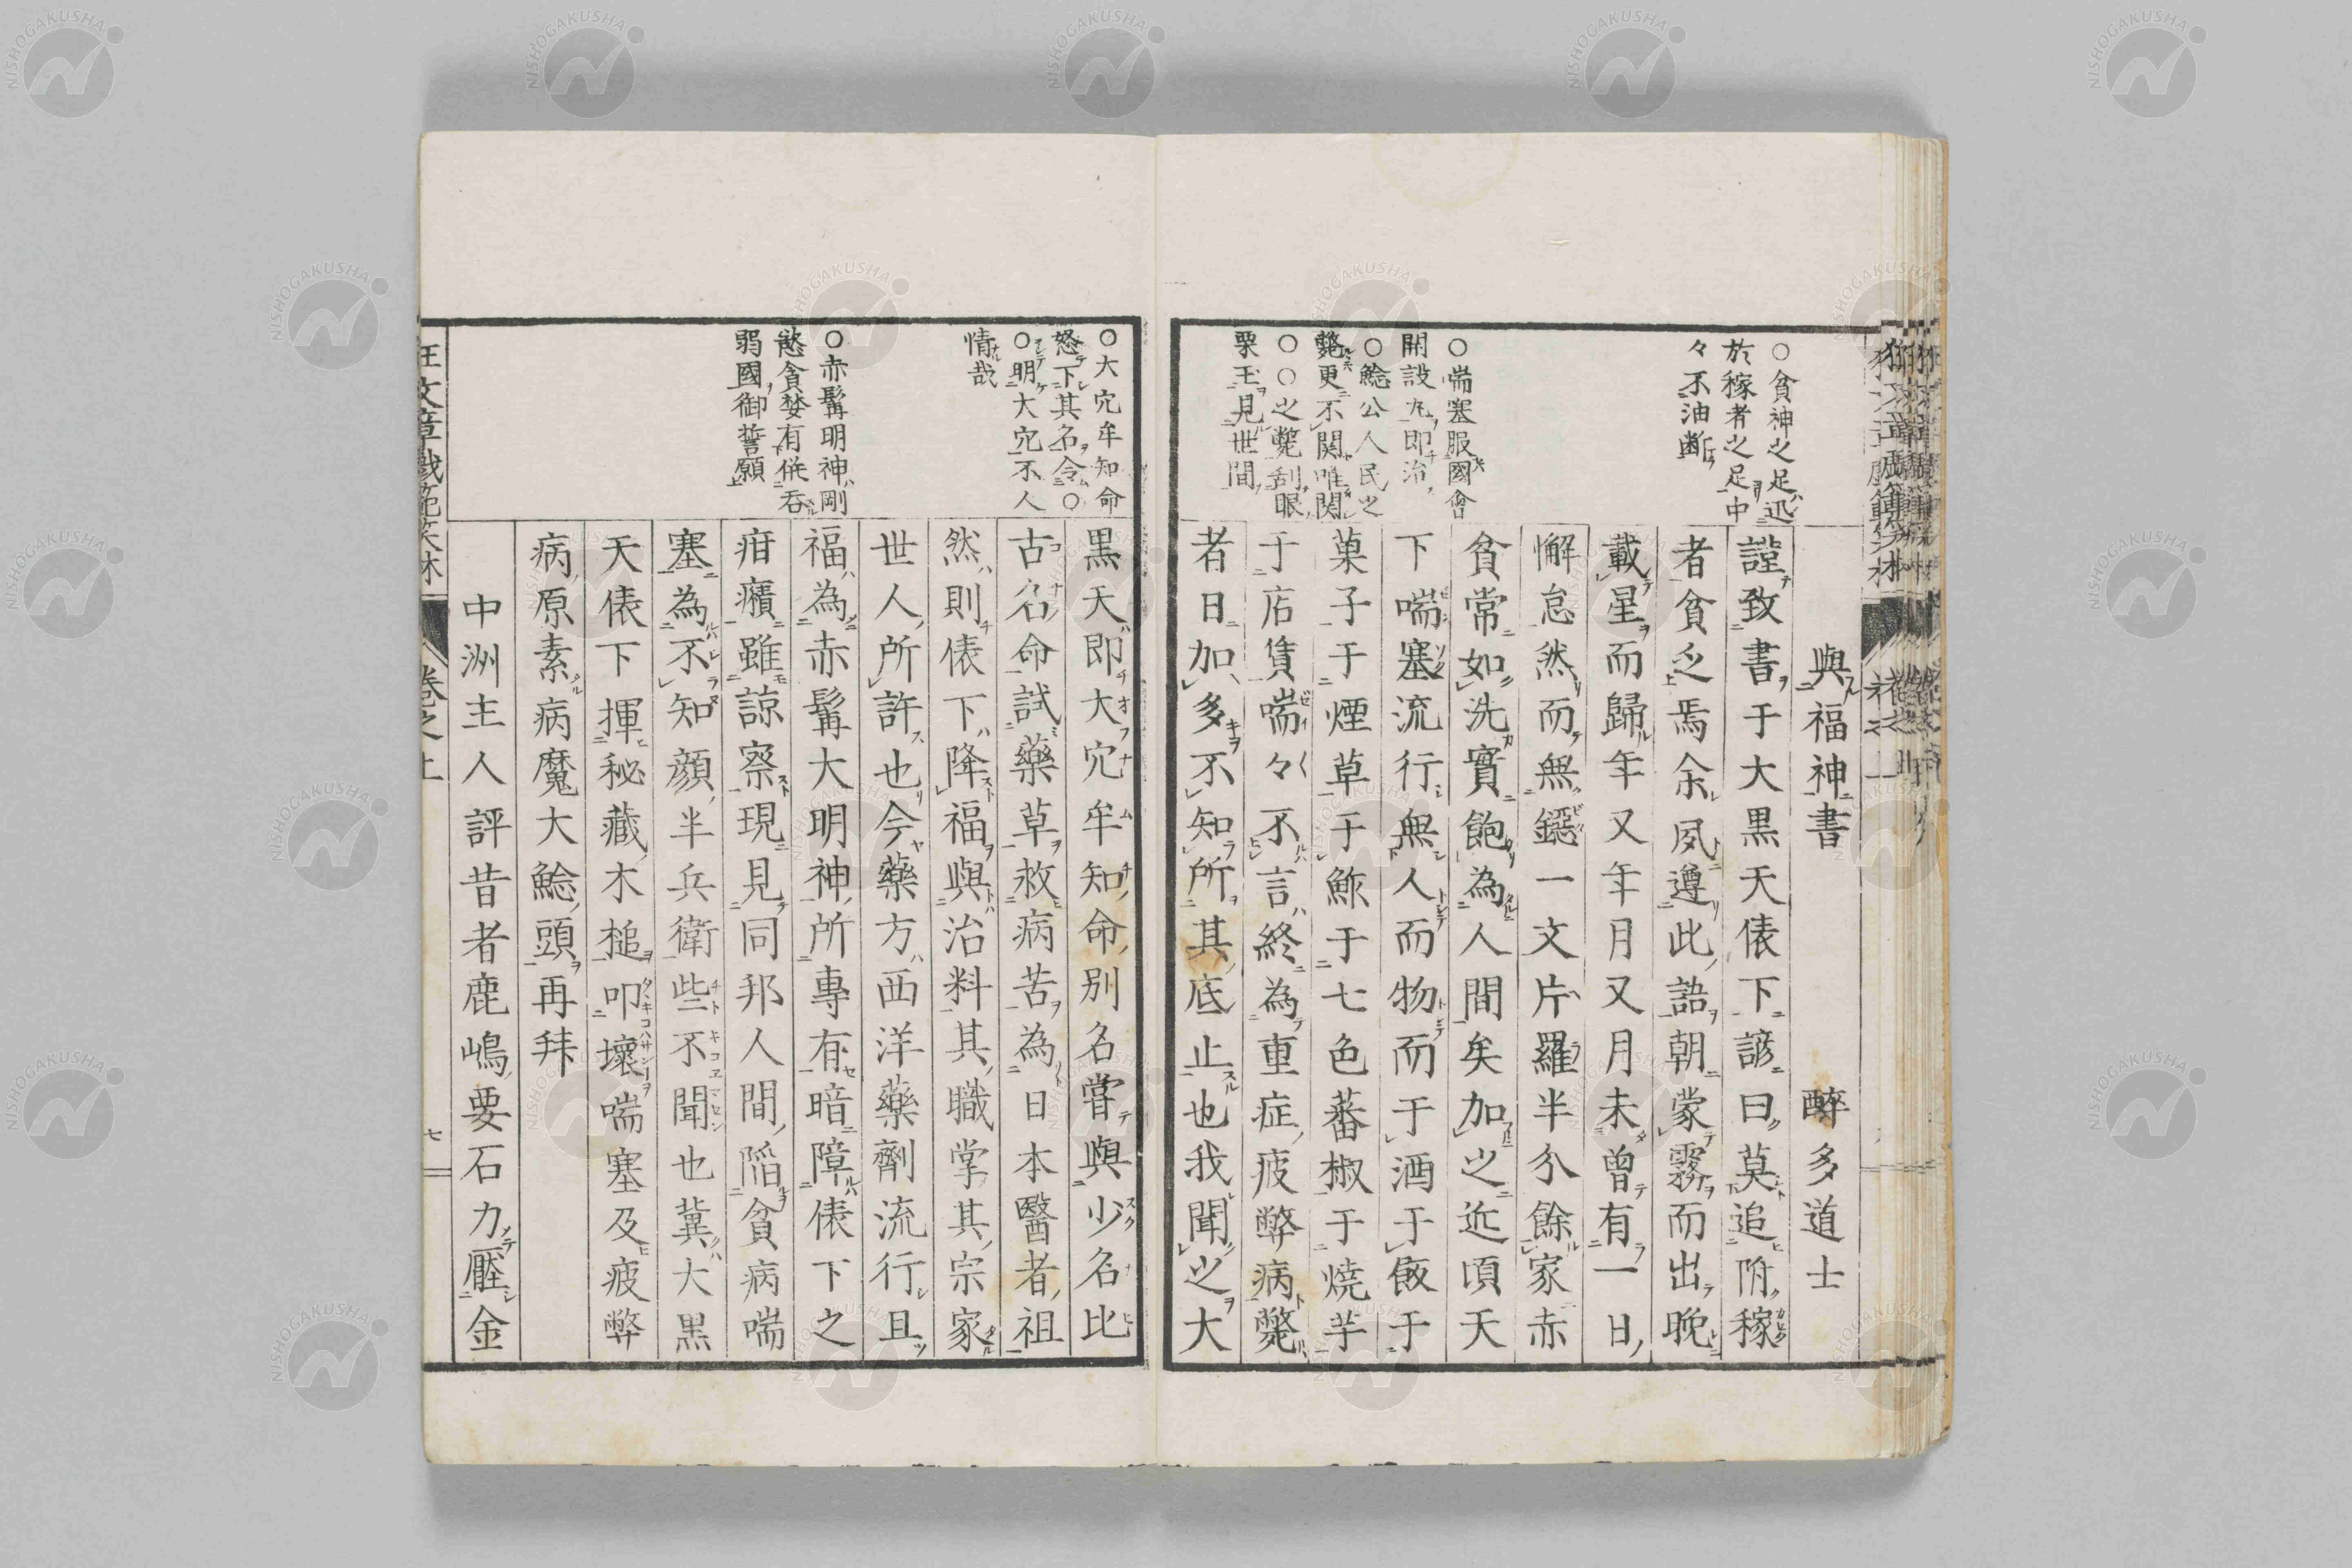 與福神書　醉多道士
謹致書于大黒天俵下諺曰莫追附稼
者貧乏焉余夙遵此語朝蒙霧而出晩
載星而歸年又年月又月未曾有一日
懈怠然而無鐚一文片羅半分餘家赤
貧常如洗實飽為人間矣加之近頃天
下喘塞流行無人而物而于酒于飯于
菓子于煙草于鮓于七色蕃椒于焼芋
于店賃喘々不言終為重症疲弊病斃
者日加多不知所其底止也我聞之大
○貧神之足迅
於稼者之足中
々不油断
○喘塞服國會
開設丸即治
○鯰公人民之
斃更不関唯関
○○之斃刮眼
栗王見世間
黒天即大穴牟知命別名嘗與少名比
古名命試藥草救病苦為日本醫者祖
然則俵下降福與治料其職掌其宗家
世人所許也今藥方西洋藥劑流行且
福為赤髯大明神所專有暗障俵下之
疳癪雖諒察現見同邦人間陷貧病喘
塞為不知顔半兵衛些不聞也冀大黒
天俵下揮秘藏木槌叩壞喘塞及疲弊
病原素病魔大鯰頭再拜
中洲主人評昔者鹿嶋要石力壓金
○大穴牟知命
怒下其名令○
○明大穴不人
情哉
○赤髯明神剛
慾貪婪有併呑
弱國御誓願
狂文章戯範笑林
卷之上
七
NISHOGAKUSHA